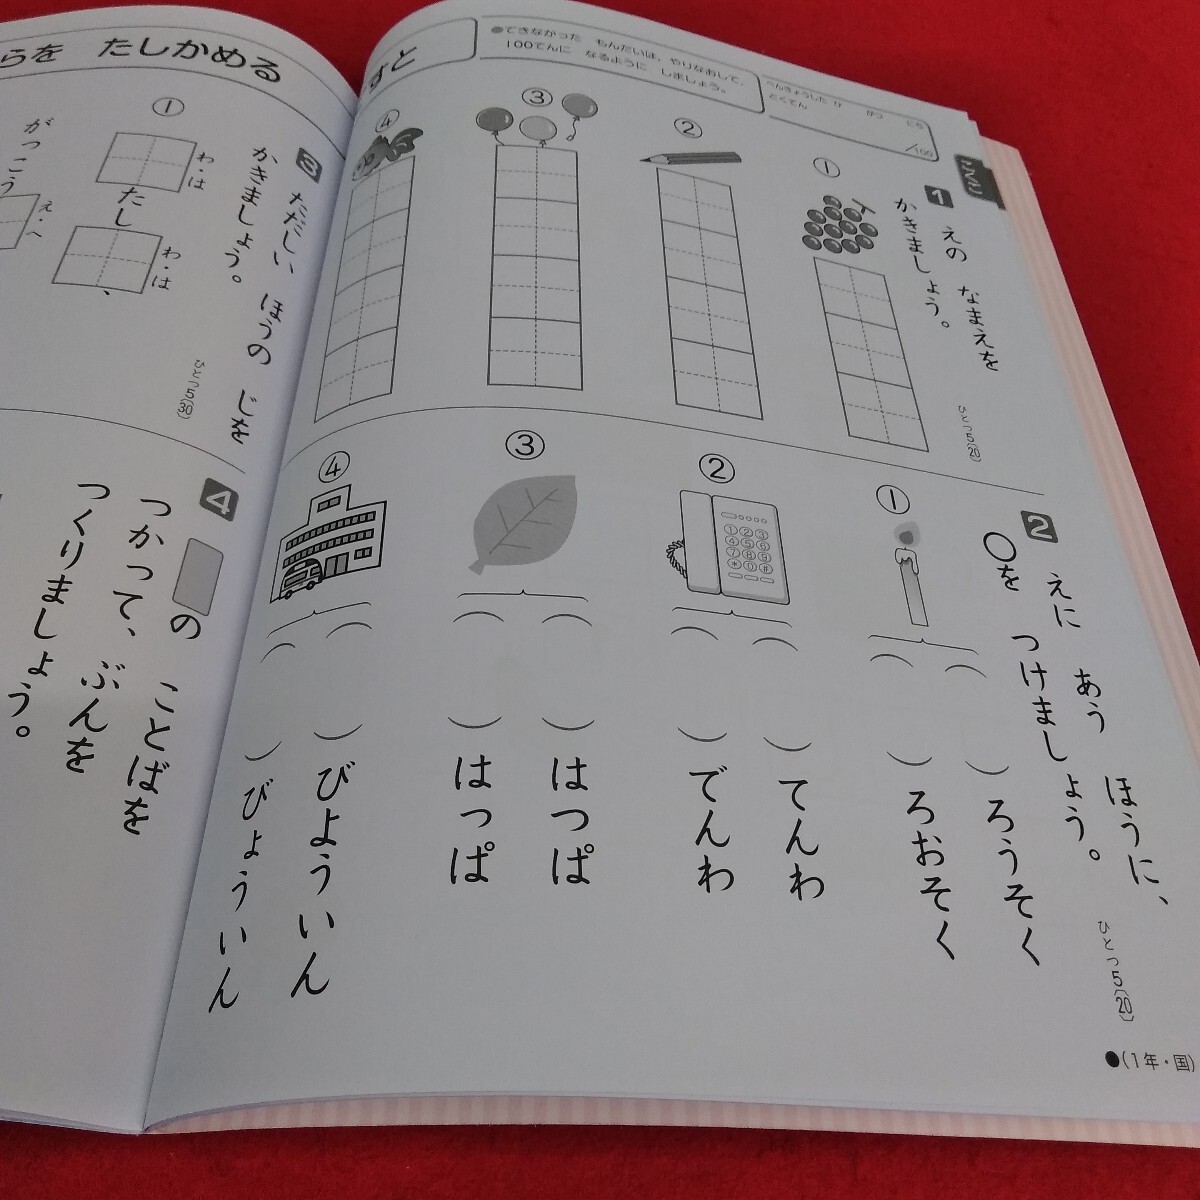 らを たしかめる
すと
●できなかった もんだいは、やりなおして、
100てんに なるように しましょう。
べんきょうした ひ がつ にち
とくてん
/100
こくご
1 えの なまえを
かきましょう。
ひとつ5(20)
①
②
③
④
2 えに あう ほうに、
○を つけましょう。
ひとつ5(20)
①
ろうそく
ろおそく
②
1 2 3
4 5 6
7 8 9
* 0 #
てんわ
でんわ
③
はつぱ
はっぱ
④
びよういん
びょういん
3 ただしい ほうの じを
かきましょう。
ひとつ5(30)
①
わ・は
たし
わ・は
、
がっこう
え・へ
4 の ことばを
つかって、ぶんを
つくりましょう。
●(1年・国)